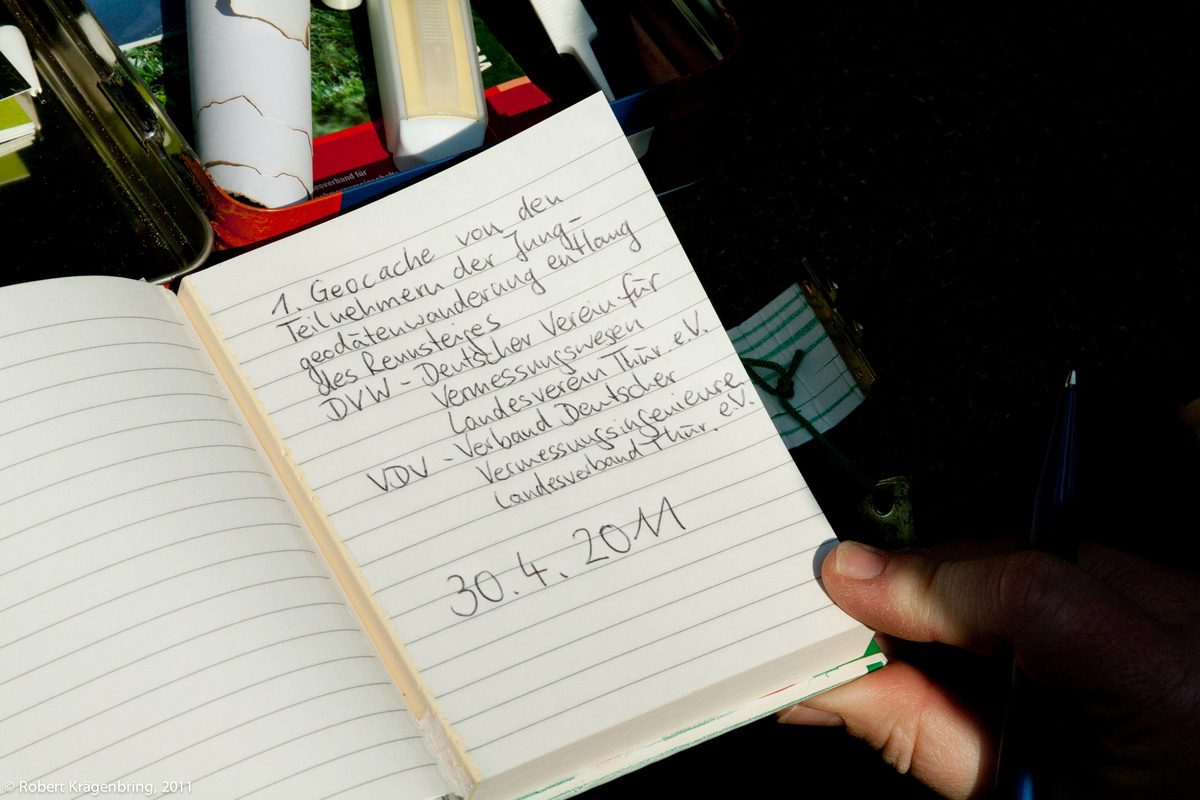 esverband für
1. Geocache von den
Teilnehmern der Jung-
geodätenwanderung entlang
des Rennsteiges
DVW - Deutscher Verein für
Vermessungswesen
Landesverein Thür. e.V.
VDV - Verband Deutscher
Vermessungsingenieure
Landesverband Thür. e.V.
30.4.2011
© Robert Krägenbring, 2011